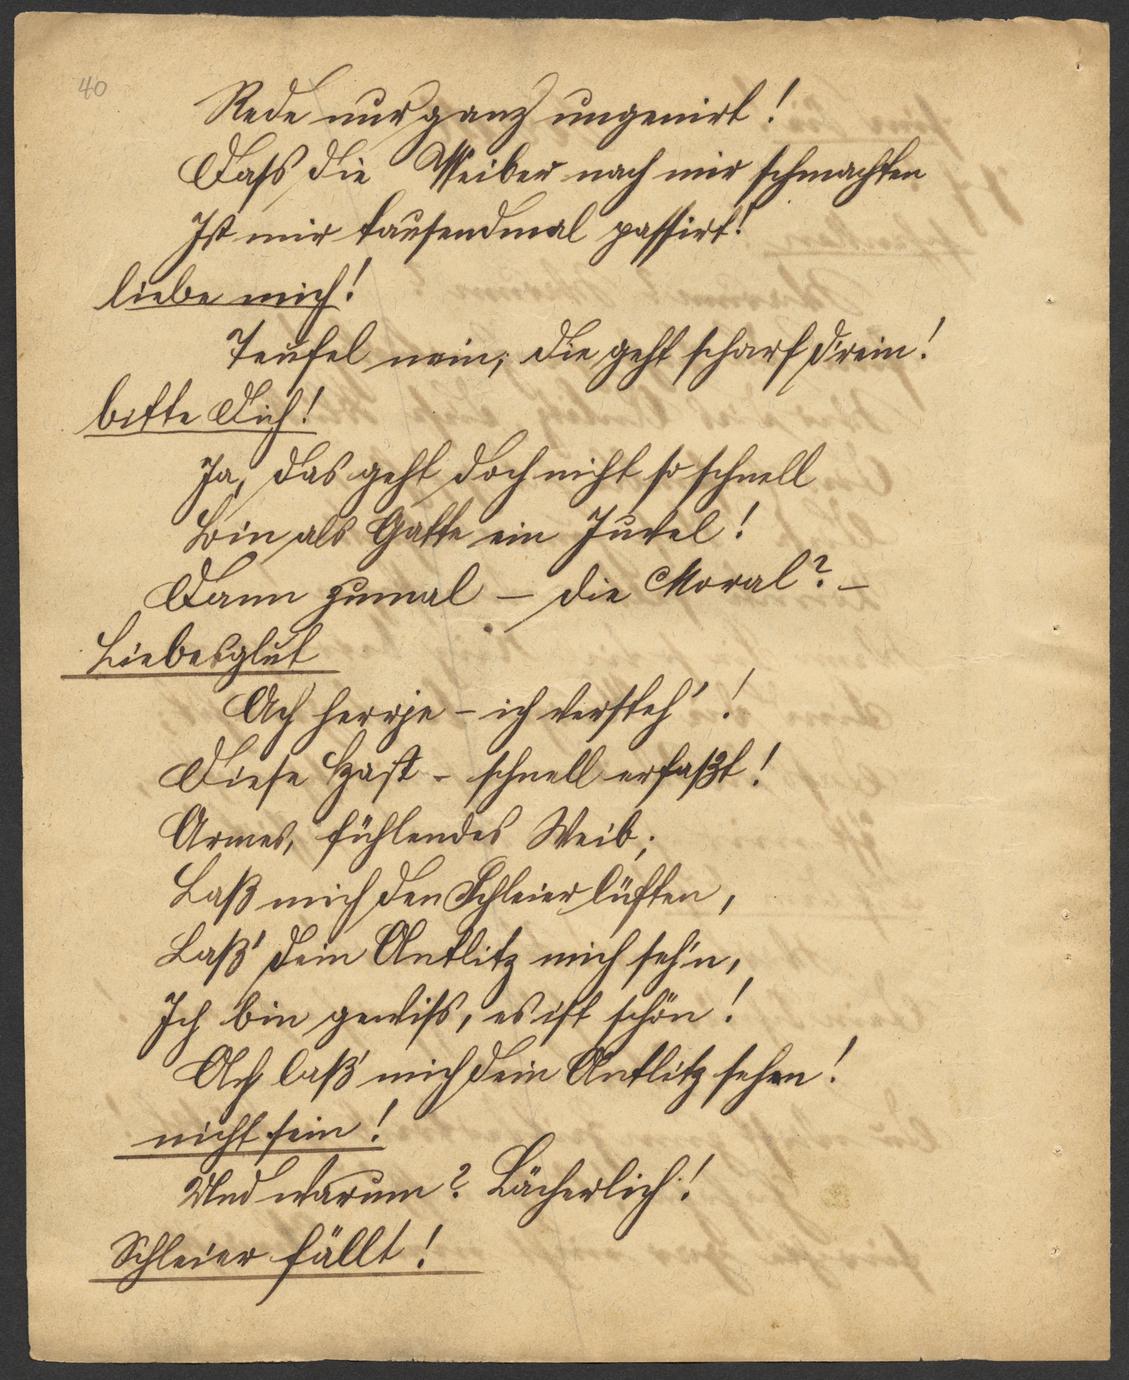 40
Rede nur ganz ungenirt!
Dass die Weiber nach mir schmachten
Ist mir tausendmal passirt!
liebe mich!
Teufel nein, die geht scharf d'rein!
bitte Dich!
Ja, das geht doch nicht so schnell
Bin als Gatte ein Juwel!
Dann zumal – die Moral? –
Liebesglut
Ach herrje – ich versteh'!
Diese Hast – schnell erfaßt!
Armes, fühlendes Weib;
Laß mich den Schleier lüften,
Laß' dein Antlitz mich seh'n,
Ich bin gewiss, es ist schön!
Ach laß' mich dein Antlitz sehen!
nicht sein!
Und warum? Lächerlich!
Schleier fällt!